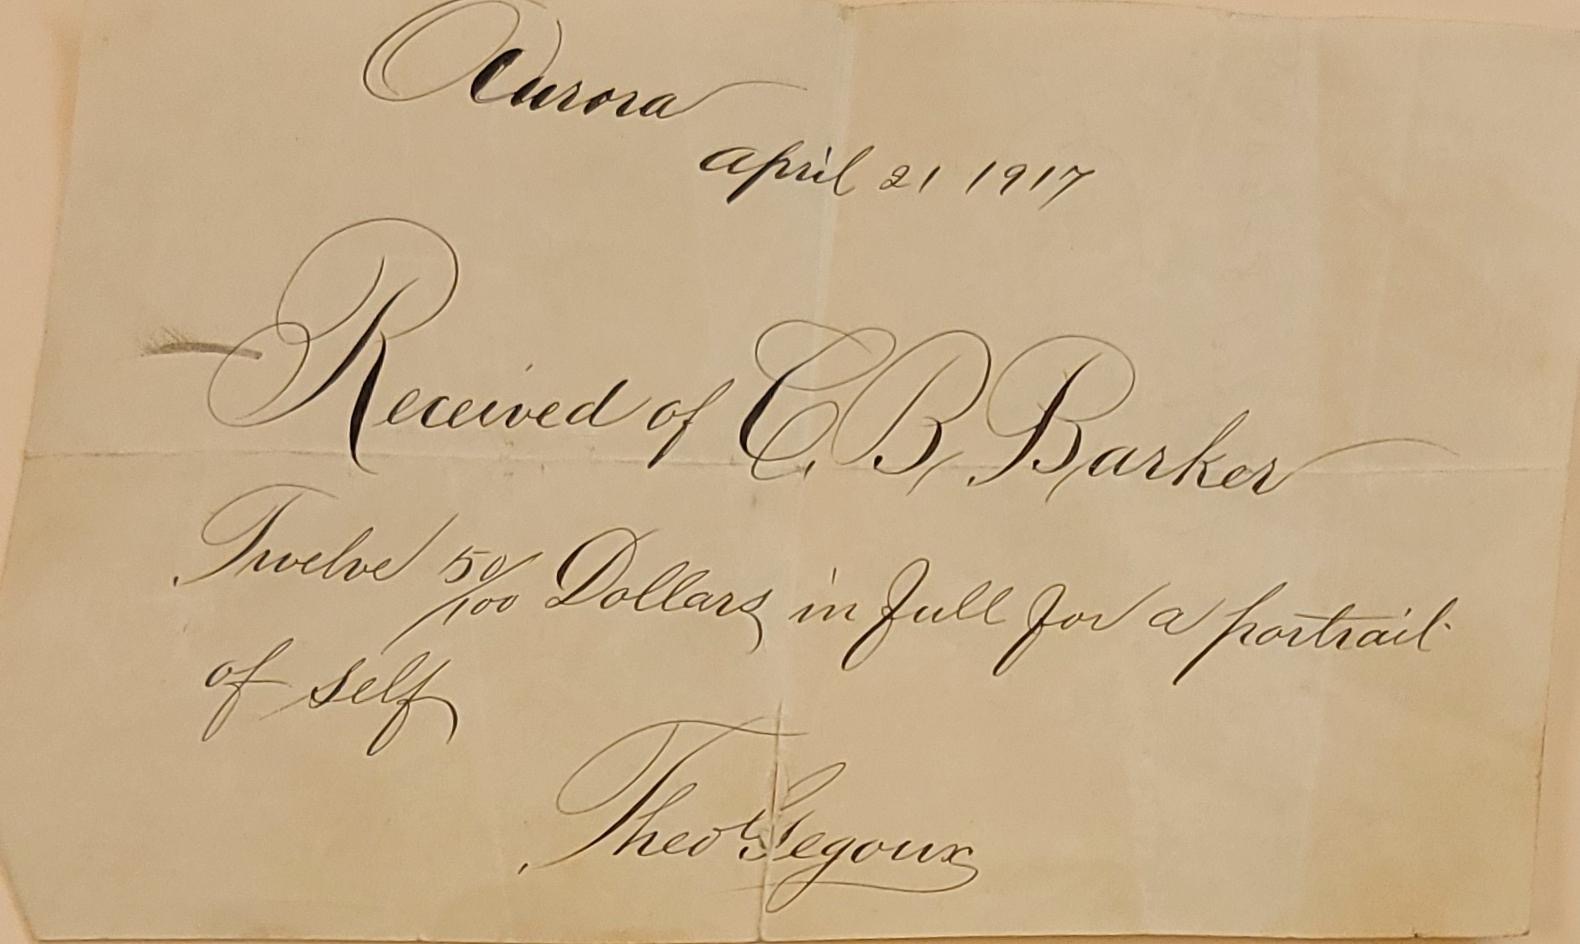 Aurora
april 21 1917
Received of C. B. Barker
Twelve 50/100 Dollars in full for a portrait
of self
Theo Gegoux